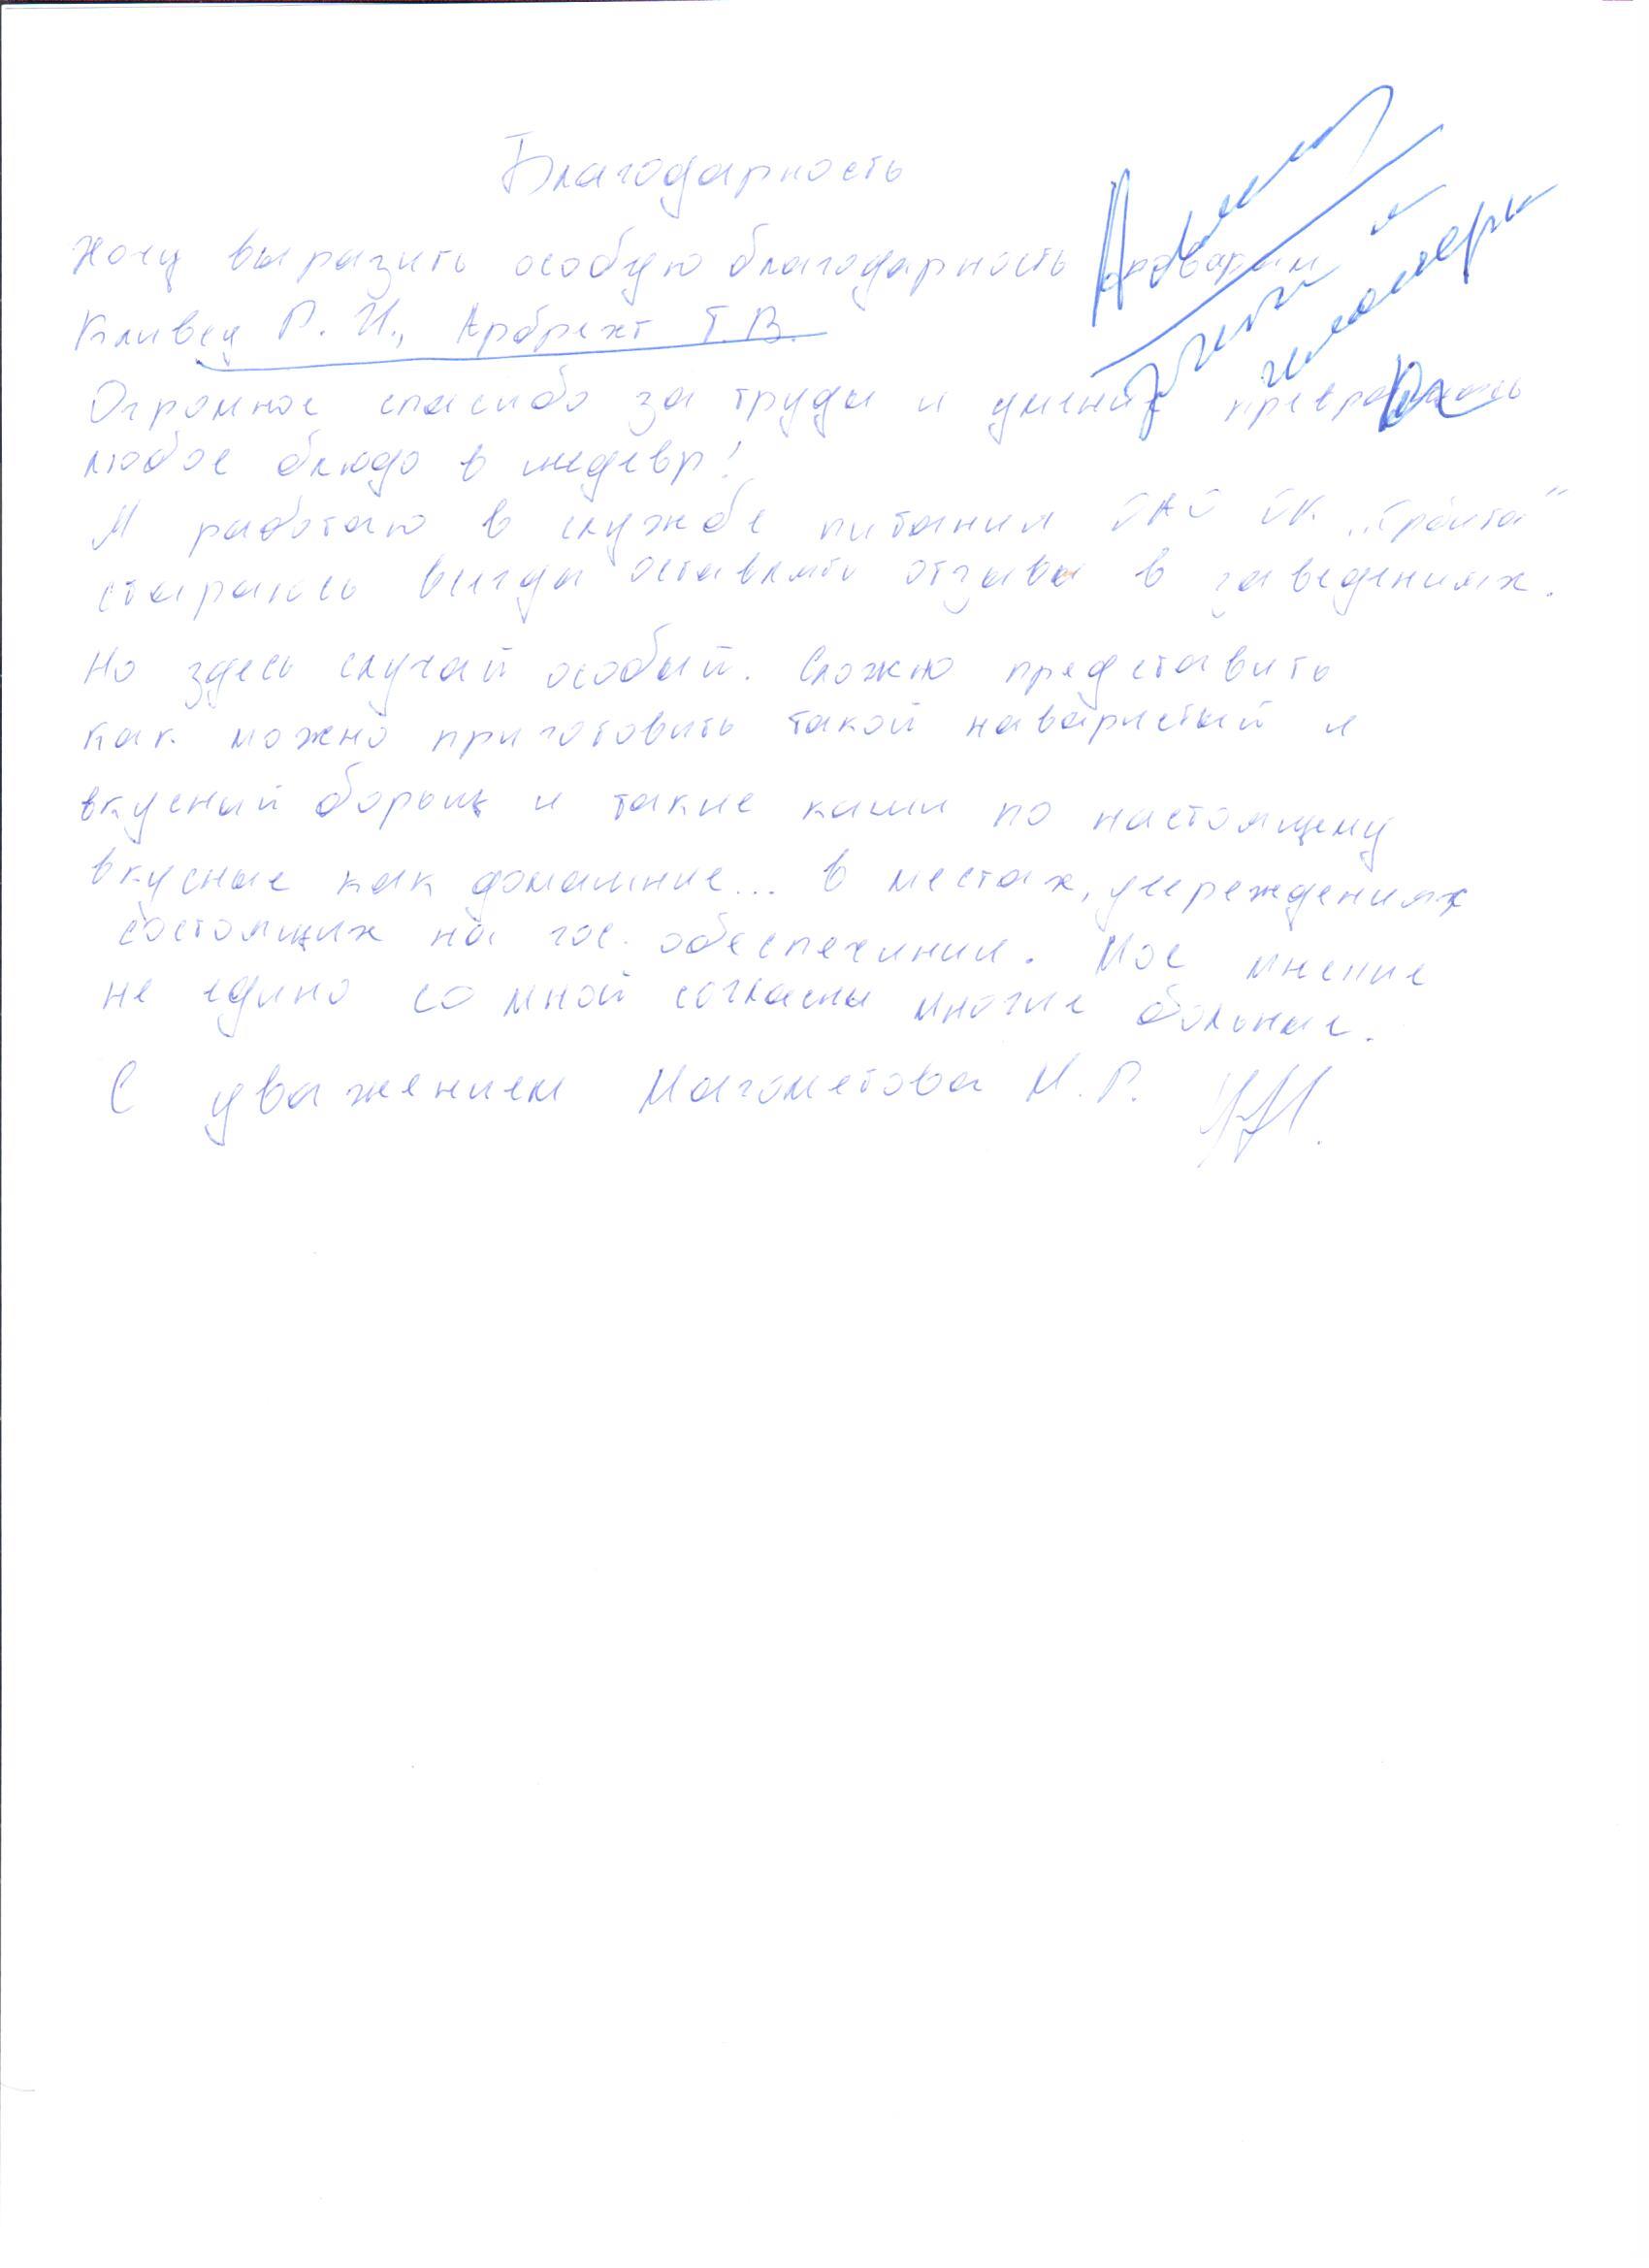 Благодарность
Хочу выразить особую благодарность поварам
Кливец Р. И., Арбрехт Т. В.
Огромное спасибо за труды и умения превращать
любое блюдо в шедевр!
Я работаю в службе питания ПАО ГК
стараюсь всегда оставлять отзывы в заведениях.
Но здесь случай особый. Сложно представить
как можно приготовить такой наваристый и
вкусный борыщ и такие каши по настоящему
вкусные как домашние... в местах, учреждениях
состоящих на гос. обеспечинии. Мое мнение
не едино со мной согласны многие больные.
С уважением Магометова М. Р.